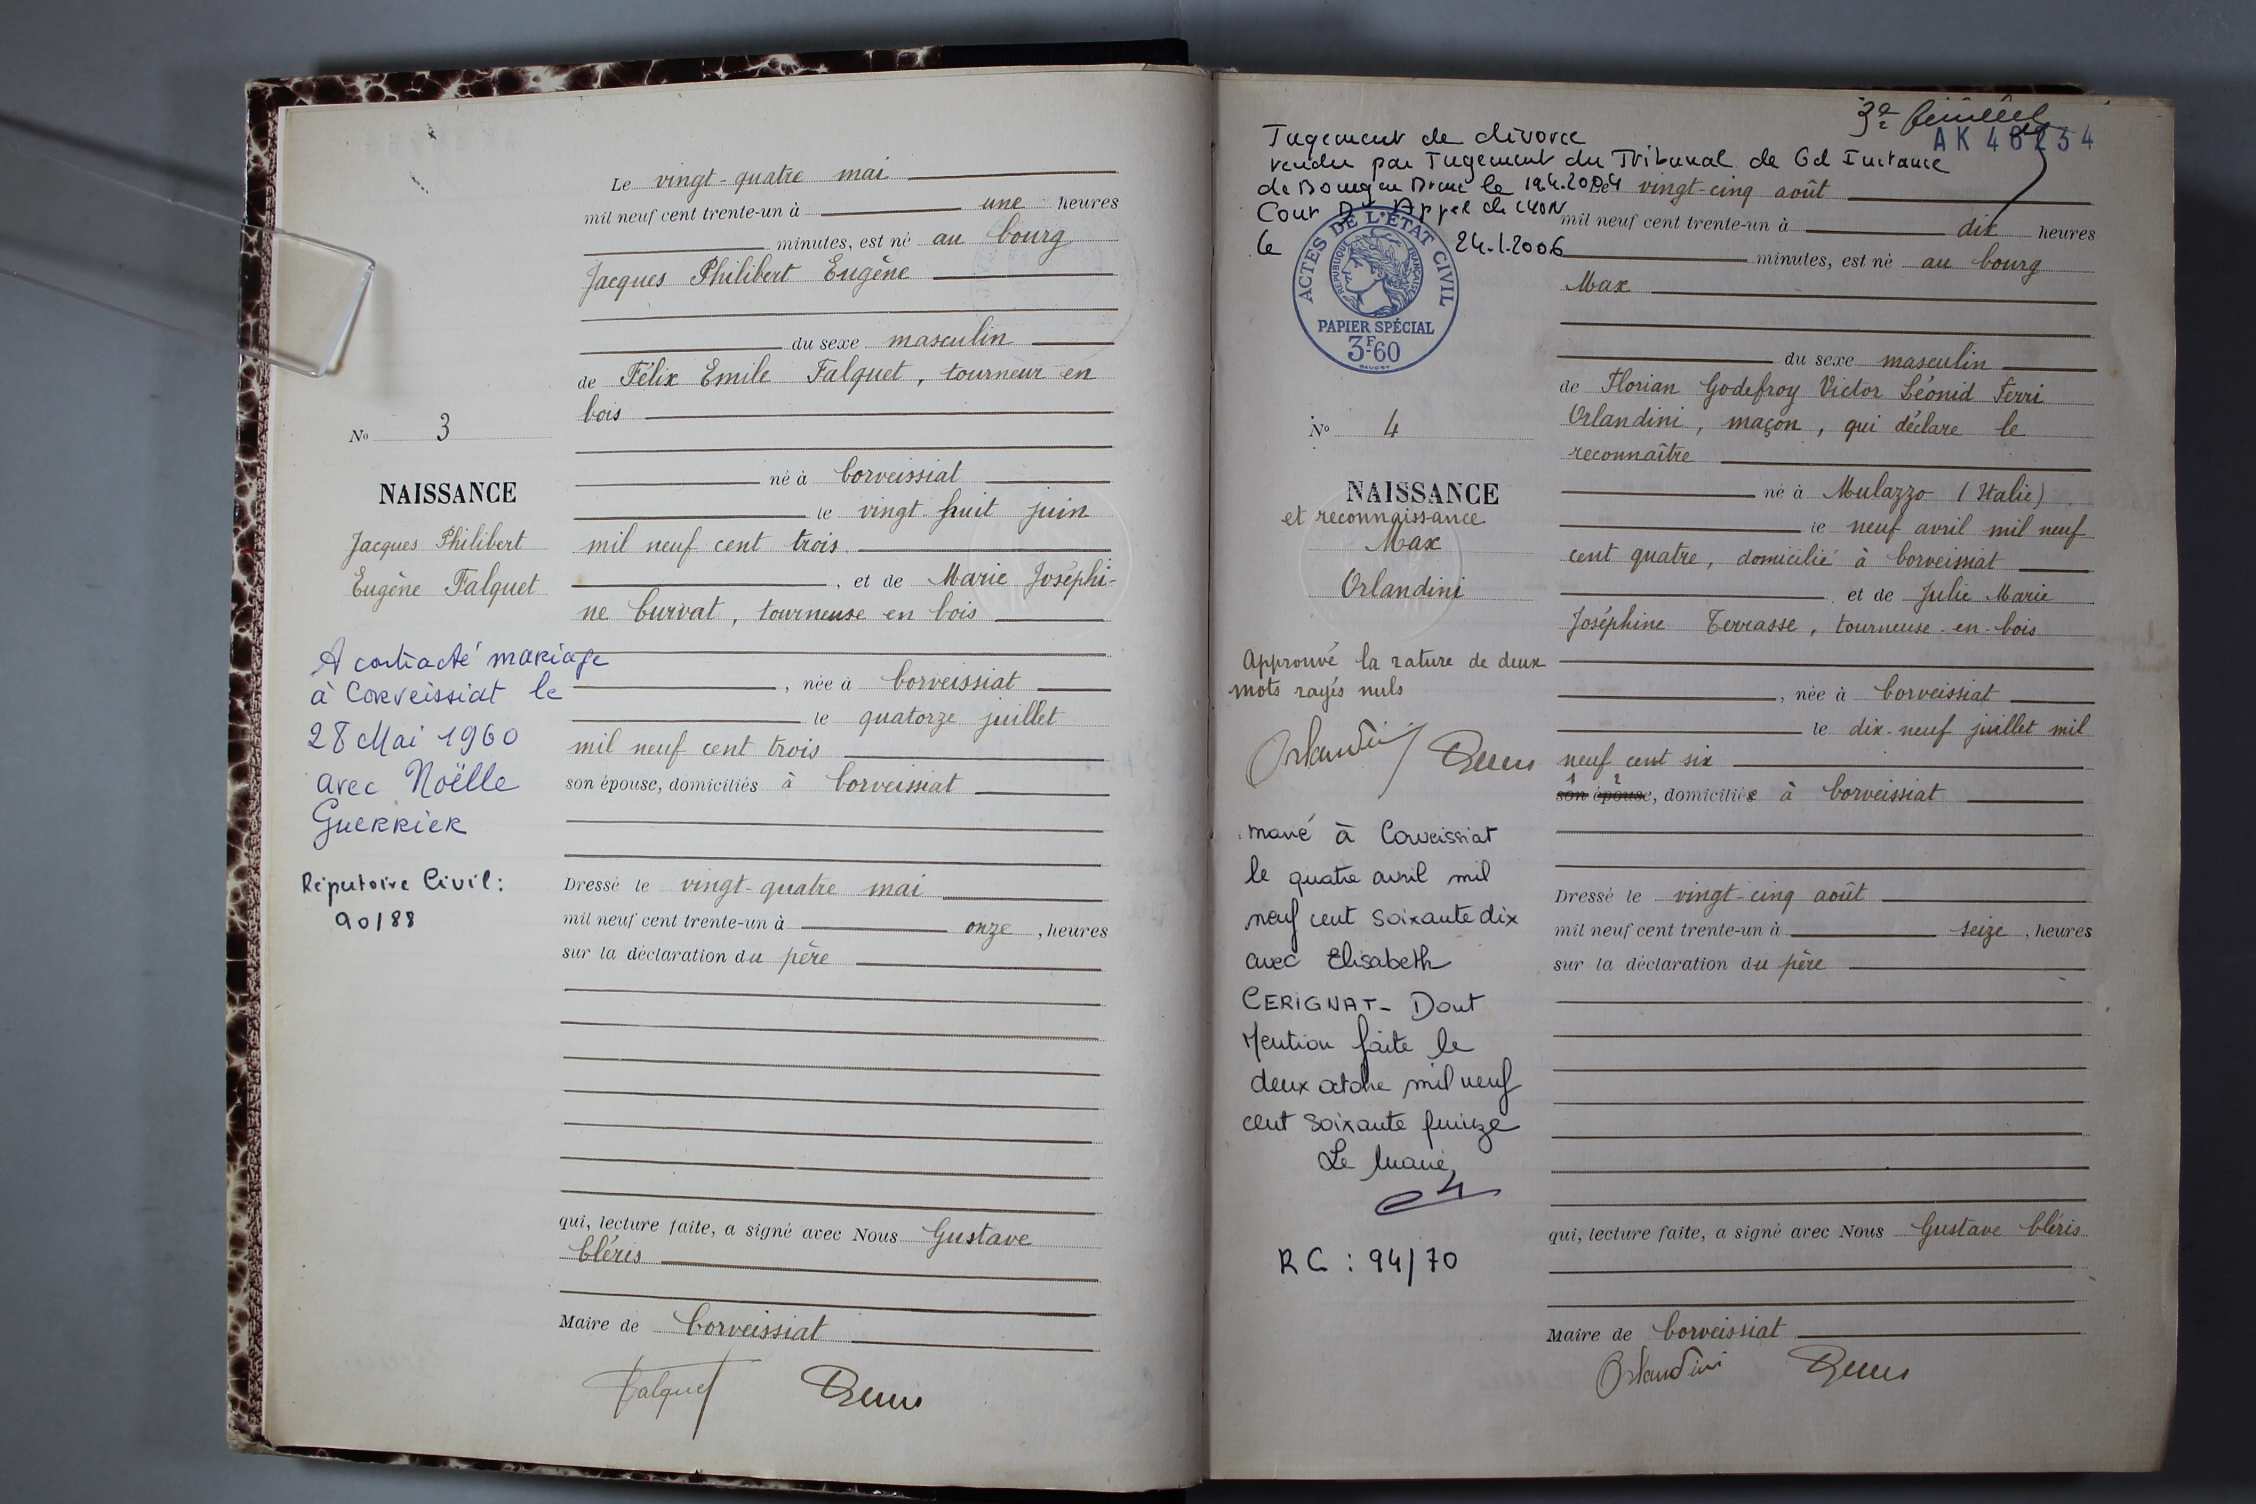 Le vingt-quatre mai
mil neuf cent trente-un à une heures
minutes, est né au bourg
Jacques Philibert Eugène
du sexe masculin
de Félix Emile Falquet, tourneur en
bois
né à Corveissiat
le vingt-huit juin
mil neuf cent trois
, et de Marie Joséphi-
ne Curvat, tourneuse en bois
, née à Corveissiat
le quatorze juillet
mil neuf cent trois
son épouse, domiciliés à Corveissiat
Dressé le vingt-quatre mai
mil neuf cent trente-un à onze, heures
sur la déclaration du père
qui, lecture faite, a signé avec Nous Gustave
Cléris
Maire de Corveissiat
Falquet
No 3
NAISSANCE
Jacques Philibert
Eugène Falquet
A contracté mariage
à Corveissiat le
28 Mai 1960
avec Noëlle
GUERRIER
Répertoire Civil :
90/88
AK 46234
Jugement de divorce
rendu par Jugement du Tribunal de Gd Instance
de Bourg en Bresse le 19.4.2004
Cour D'Appel de LYON
le 24.1.2006
ACTES DE L'ÉTAT CIVIL
RÉPUBLIQUE FRANÇAISE
PAPIER SPÉCIAL
3F60
No 4
NAISSANCE
et reconnaissance
Max
Orlandini
Approuvé la rature de deux
mots rayés nuls
Orlandini
marié à Corveissiat
le quatre avril mil
neuf cent soixante dix
avec Elisabeth
CERIGNAT - Dont
Mention faite le
deux octobre mil neuf
cent soixante quinze
Le Maire,
RC : 94/70
Le vingt-cinq août
mil neuf cent trente-un à dix heures
minutes, est né au bourg
Max
du sexe masculin
de Florian Godefroy Victor Léonid Ferri
Orlandini, maçon, qui déclare le
reconnaître
né à Mulazzo (Italie)
le neuf avril mil neuf
cent quatre, domicilié à Corveissiat
et de Julie Marie
Joséphine Terrasse, tourneuse-en-bois
, née à Corveissiat
le dix-neuf juillet mil
neuf cent six
son épouse, domiciliés à Corveissiat
Dressé le vingt-cinq août
mil neuf cent trente-un à seize, heures
sur la déclaration du père
qui, lecture faite, a signé avec Nous Gustave Cléris
Maire de Corveissiat
Orlandini